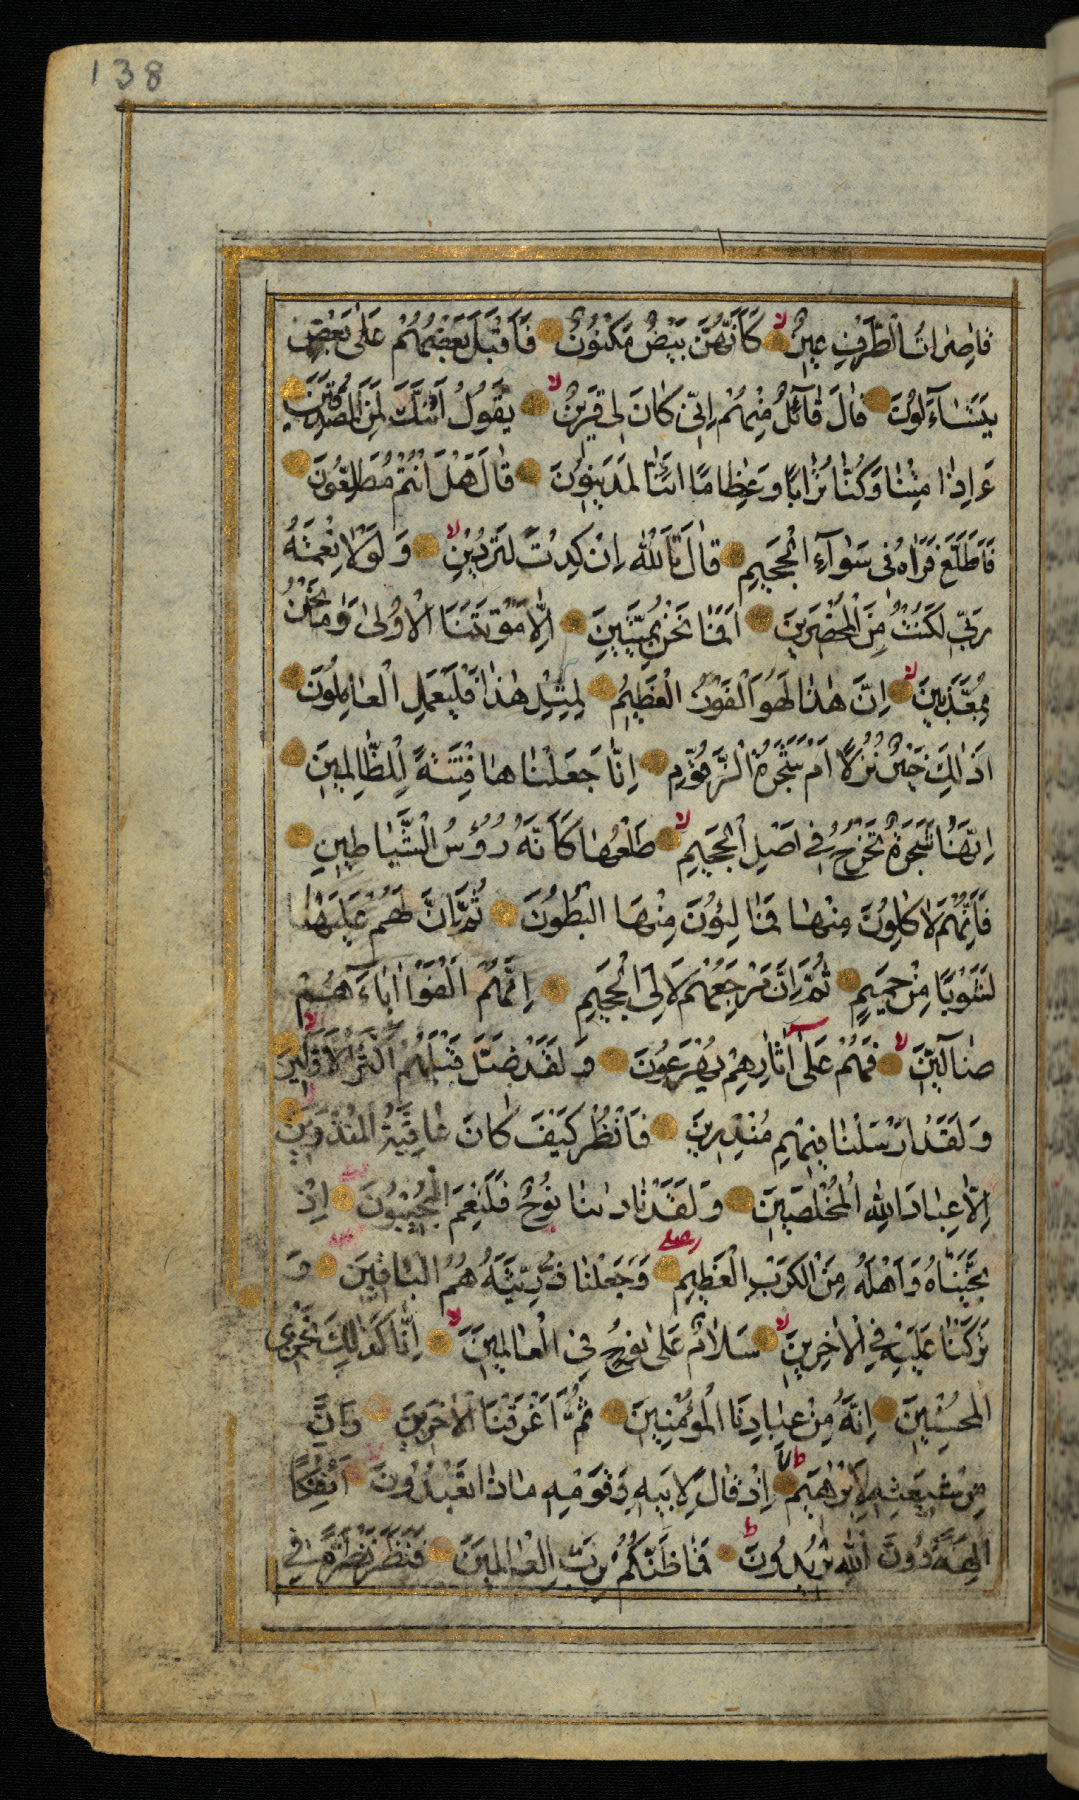 138
قَاصِرَاتُ الطَّرْفِ عِينٌ لا كَأَنَّهُنَّ بَيْضٌ مَكْنُونٌ فَأَقْبَلَ بَعْضُهُمْ عَلَى بَعْضٍ
يَتَسَآءَلُونَ قَالَ قَآئِلٌ مِنْهُمْ اِنِّى كَانَ لِى قَرِينٌ لا يَقُولُ اَئِنَّكَ لَمِنَ الْمُصَدِّقِينَ
ءَاِذَا مِتْنَا وَكُنَّا تُرَابًا وَعِظَامًا ائِنَّا لَمَدِينُونَ قَالَ هَلْ اَنْتُمْ مُطَّلِعُونَ
فَاطَّلَعَ فَرَاٰهُ فِى سَوَآءِ الْجَحِيمِ قَالَ تَاللّٰهِ اِنْ كِدْتَ لَتُرْدِينِ لا وَلَوْلَا نِعْمَةُ
رَبِّى لَكُنْتُ مِنَ الْمُحْضَرِينَ اَفَمَا نَحْنُ بِمَيِّتِينَ اِلَّا مَوْتَتَنَا الْاُولَى وَمَا نَحْنُ
بِمُعَذَّبِينَ لا اِنَّ هٰذَا لَهُوَ الْفَوْزُ الْعَظِيمُ لِمِثْلِ هٰذَا فَلْيَعْمَلِ الْعَامِلُونَ
اَذٰلِكَ خَيْرٌ نُزُلًا اَمْ شَجَرَةُ الزَّقُّومِ اِنَّا جَعَلْنَاهَا فِتْنَةً لِلظَّالِمِينَ
اِنَّهَا شَجَرَةٌ تَخْرُجُ فِى اَصْلِ الْجَحِيمِ لا طَلْعُهَا كَاَنَّهُ رُؤُسُ الشَّيَاطِينِ
فَاِنَّهُمْ لَاٰكِلُونَ مِنْهَا فَمَالِئُونَ مِنْهَا الْبُطُونَ ثُمَّ اِنَّ لَهُمْ عَلَيْهَا
لَشَوْبًا مِنْ حَمِيمٍ ثُمَّ اِنَّ مَرْجِعَهُمْ لَاِلَى الْجَحِيمِ اِنَّهُمْ اَلْفَوْا اٰبَاءَهُمْ
ضَآلِّينَ لا فَهُمْ عَلَى اٰثَارِهِمْ يُهْرَعُونَ وَلَقَدْ ضَلَّ قَبْلَهُمْ اَكْثَرُ الْاَوَّلِينَ لا
وَلَقَدْ اَرْسَلْنَا فِيهِمْ مُنْذِرِينَ فَانْظُرْ كَيْفَ كَانَ عَاقِبَةُ الْمُنْذَرِينَ
اِلَّا عِبَادَ اللّٰهِ الْمُخْلَصِينَ وَلَقَدْ نَادٰىنَا نُوحٌ فَلَنِعْمَ الْمُجِيبُونَ اِذْ
نَجَّيْنَاهُ وَاَهْلَهُ مِنَ الْكَرْبِ الْعَظِيمِ وَجَعَلْنَا ذُرِّيَّتَهُ هُمُ الْبَاقِينَ وَ
تَرَكْنَا عَلَيْهِ فِى الْاٰخِرِينَ لا سَلَامٌ عَلَى نُوحٍ فِى الْعَالَمِينَ لا اِنَّا كَذٰلِكَ نَجْزِى
الْمُحْسِنِينَ اِنَّهُ مِنْ عِبَادِنَا الْمُؤْمِنِينَ ثُمَّ اَغْرَقْنَا الْاٰخَرِينَ وَاِنَّ
مِنْ شِيعَتِهِ لَاِبْرٰهِيمَ اِذْ قَالَ لِاَبِيهِ وَقَوْمِهِ مَاذَا تَعْبُدُونَ اَئِفْكًا
اٰلِهَةً دُونَ اللّٰهِ تُرِيدُونَ ط فَمَا ظَنُّكُمْ بِرَبِّ الْعَالَمِينَ فَنَظَرَ نَظْرَةً فِى